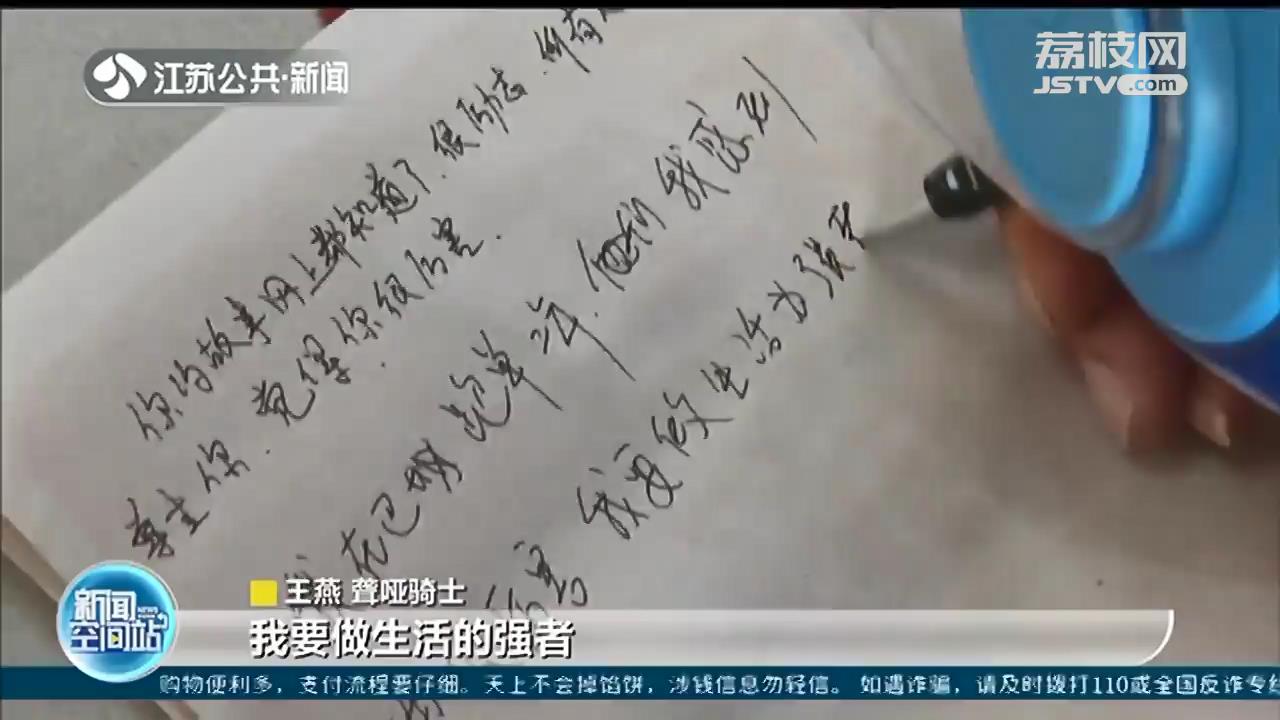 江苏公共·新闻
荔枝网
JSTV.com
你的故事网上都知道了.很励志.所有
尊重你.觉得你很厉害.
我要做生活的强者
王燕 聋哑骑士
我要做生活的强者
新闻空间站
NEWS
购物便利多，支付流程要仔细。天上不会掉馅饼，涉钱信息勿轻信。如遇诈骗，请及时拨打110或全国反诈专线